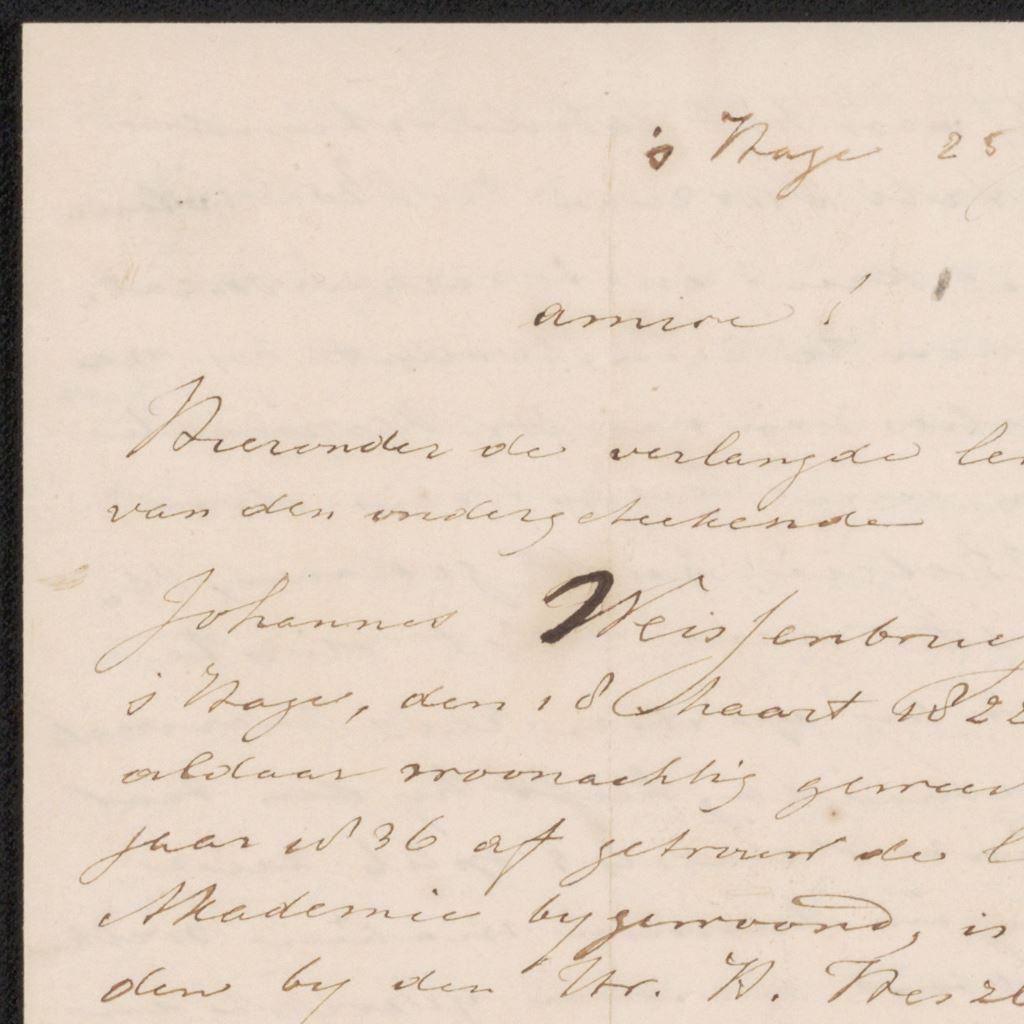 's Hage 25
amice !
Hieronder de verlangde le
van den ondergeteekende
Johannes Weissenbrug
's Hage, den 18 Maart 1822
aldaar woonachtig gewees
jaar 1836 af getrouw de l
Akademie bygewoond, is
den by den Hr. H.